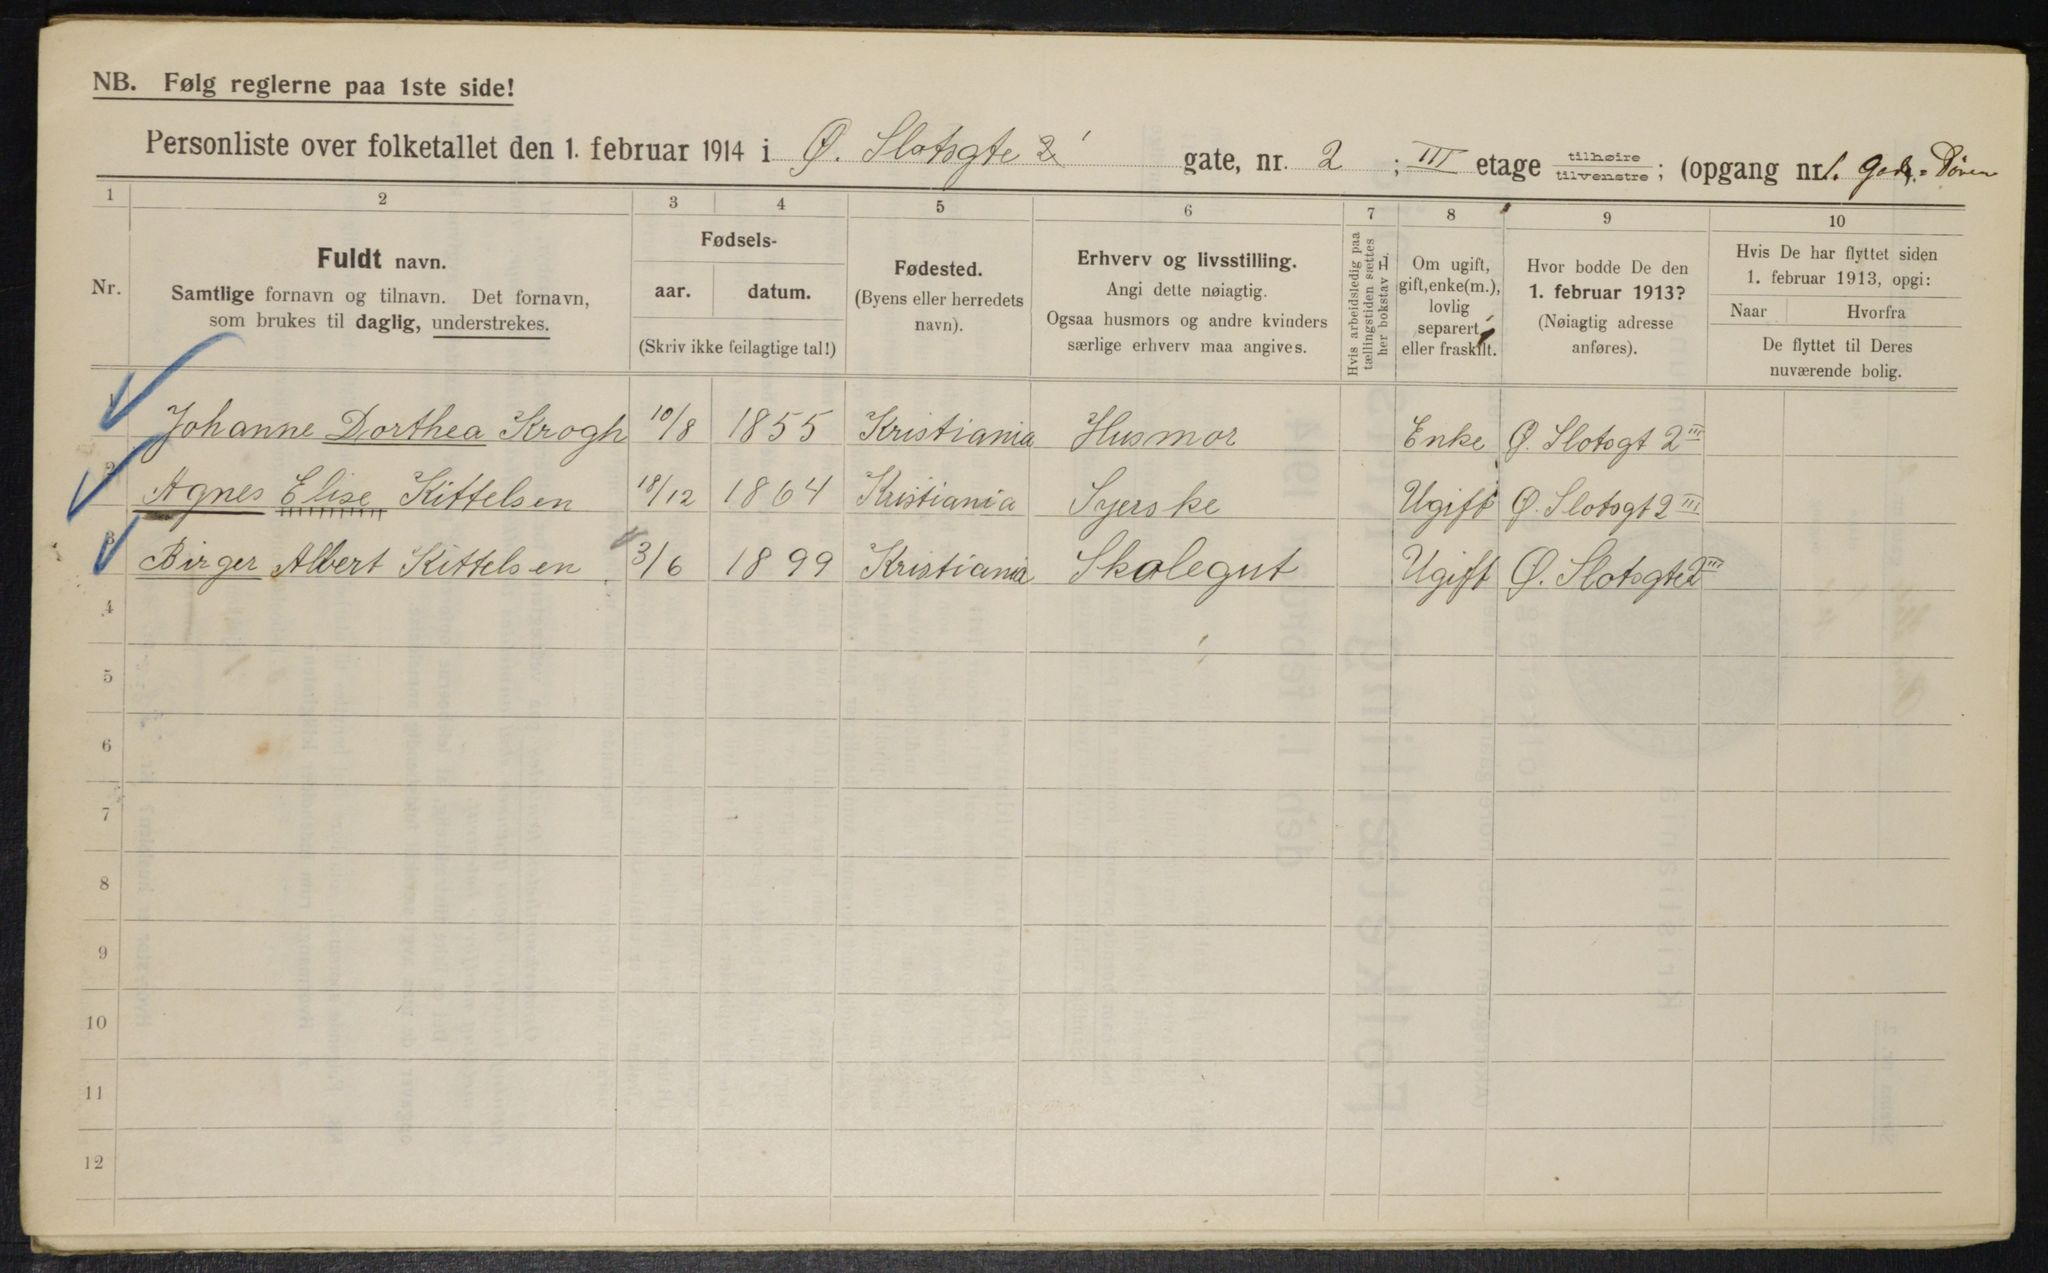 NB. Følg reglerne paa 1ste side!
Personliste over folketallet den 1. februar 1914 i Ø. Slotsgte 2 gate, nr. 2 ; III etage tilhøire tilvenstre ; (opgang nr 1.
1 2 3 4 5 6 7 8 9 10
Nr.
Fuldt navn.
Samtlige fornavn og tilnavn. Det fornavn,
som brukes til daglig, understrekes.
Fødsels-
aar. datum.
(Skriv ikke feilagtige tal!)
Fødested.
(Byens eller herredets
navn).
Erhverv og livsstilling.
Angi dette nøiagtig.
Ogsaa husmors og andre kvinders
særlige erhverv maa angives.
Hvis arbeidsledig paa
tællingstiden sættes
her bokstav H
Om ugift,
gift, enke(m.),
lovlig
separert
eller fraskilt.
Hvor bodde De den
1. februar 1913?
(Nøiagtig adresse
anføres).
Hvis De har flyttet siden
1. februar 1913, opgi:
Naar Hvorfra
De flyttet til Deres
nuværende bolig.
1 Johanne Dorthea Krogh 10/8 1855 Kristiania Husmor Enke Ø. Slotsgt 2 III
2 Agnes Elise Kittelsen 18/12 1864 Kristiania Syerske Ugift Ø. Slotsgt 2 III
3 Birger Albert Kittelsen 3/6 1899 Kristiania Skolegut Ugift Ø. Slotsgte 2 III
4
5
6
7
8
9
10
11
12